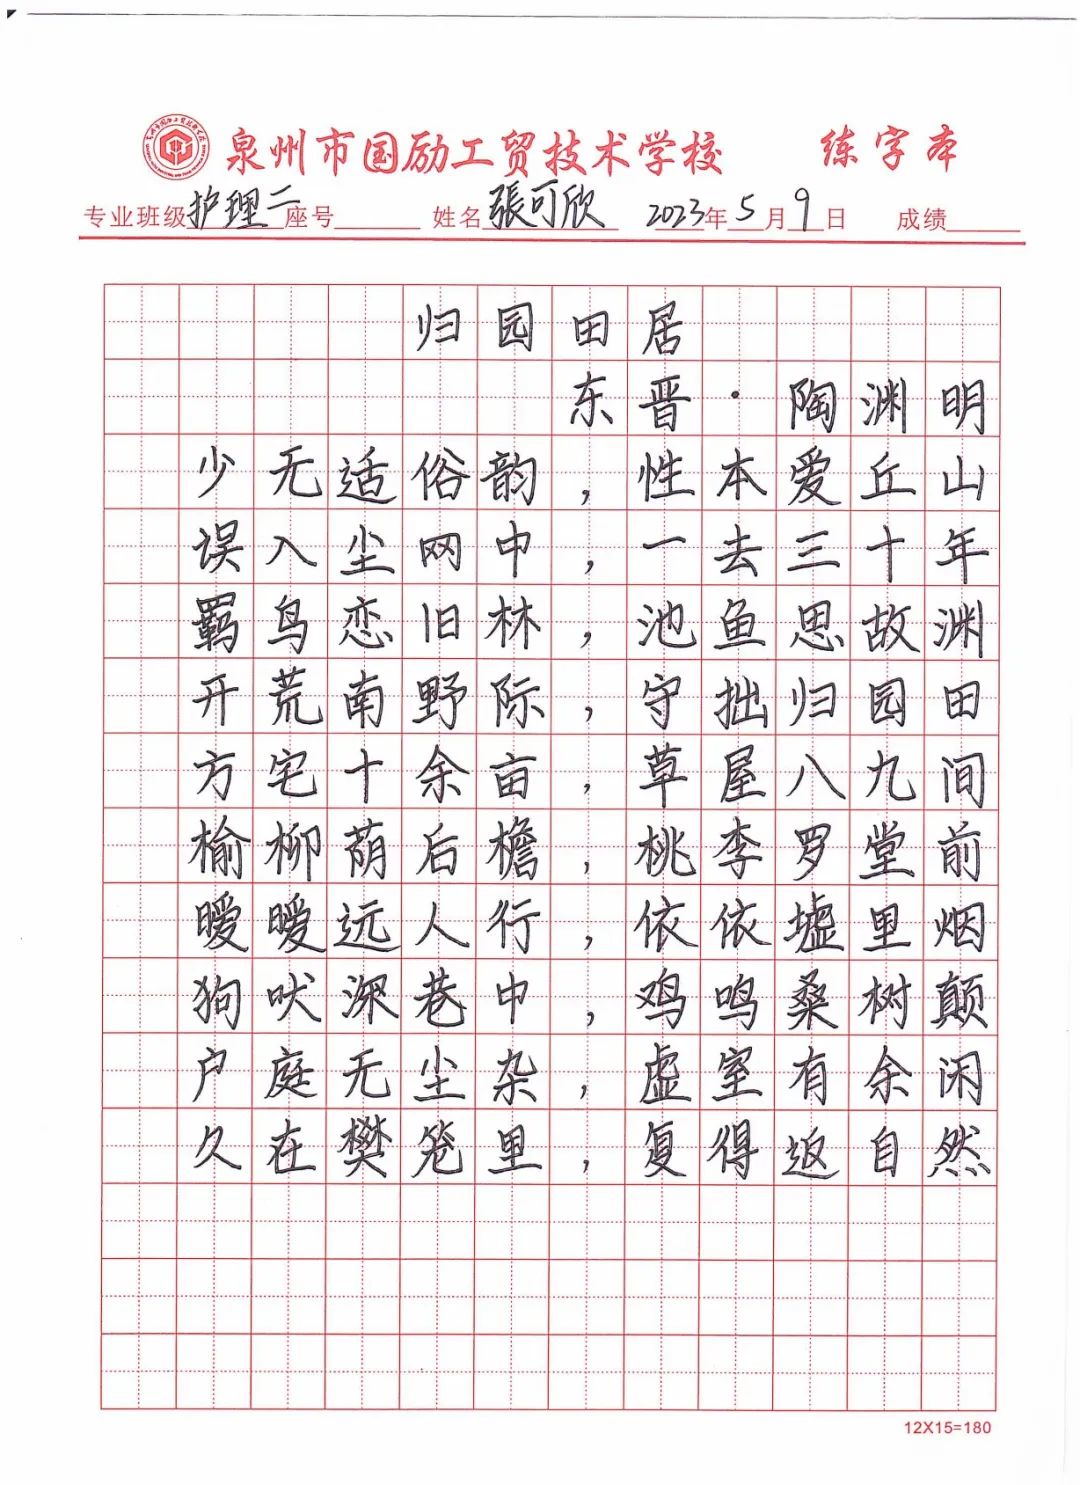 泉州市国励工贸技术学校 练字本
专业班级护理二座号 姓名張可欣 2023年5月9日 成绩
归园田居
东晋·陶渊明
少无适俗韵，性本爱丘山
误入尘网中，一去三十年
羁鸟恋旧林，池鱼思故渊
开荒南野际，守拙归园田
方宅十余亩，草屋八九间
榆柳荫后檐，桃李罗堂前
暧暧远人行，依依墟里烟
狗吠深巷中，鸡鸣桑树颠
户庭无尘杂，虚室有余闲
久在樊笼里，复得返自然
12X15=180